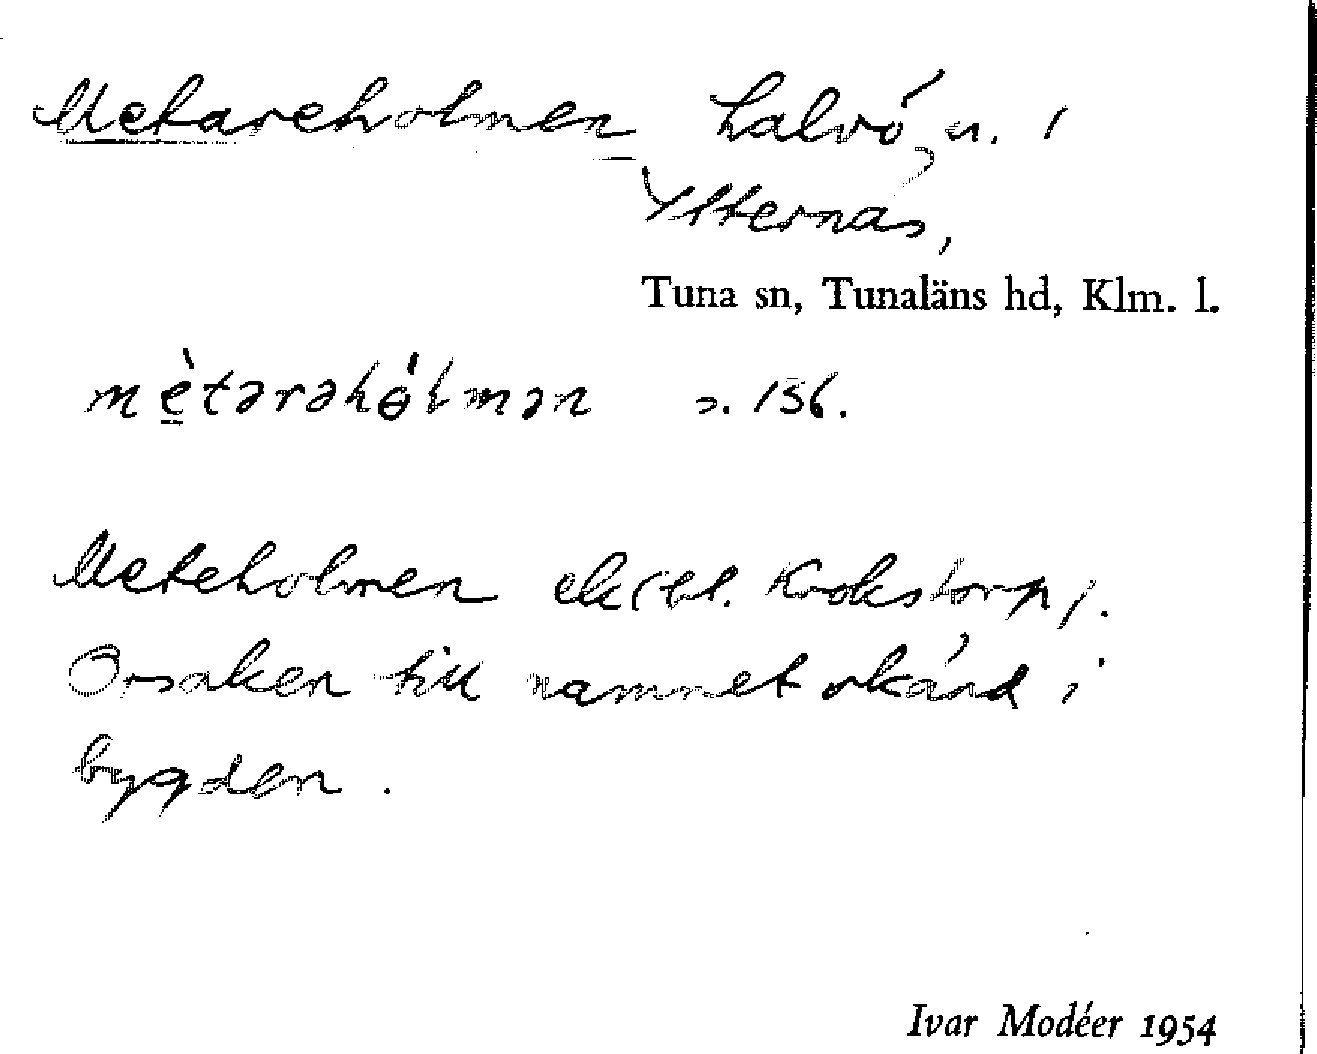 Metareholmen halvö, u. i
Ytternäs,
Tuna sn, Tunaläns hd, Klm. l.
mètərəhólmən s. 156.
Meteholmen ek (bl. Krokstorp).
Orsaken till namnet okänd i
bygden.
Ivar Modéer 1954